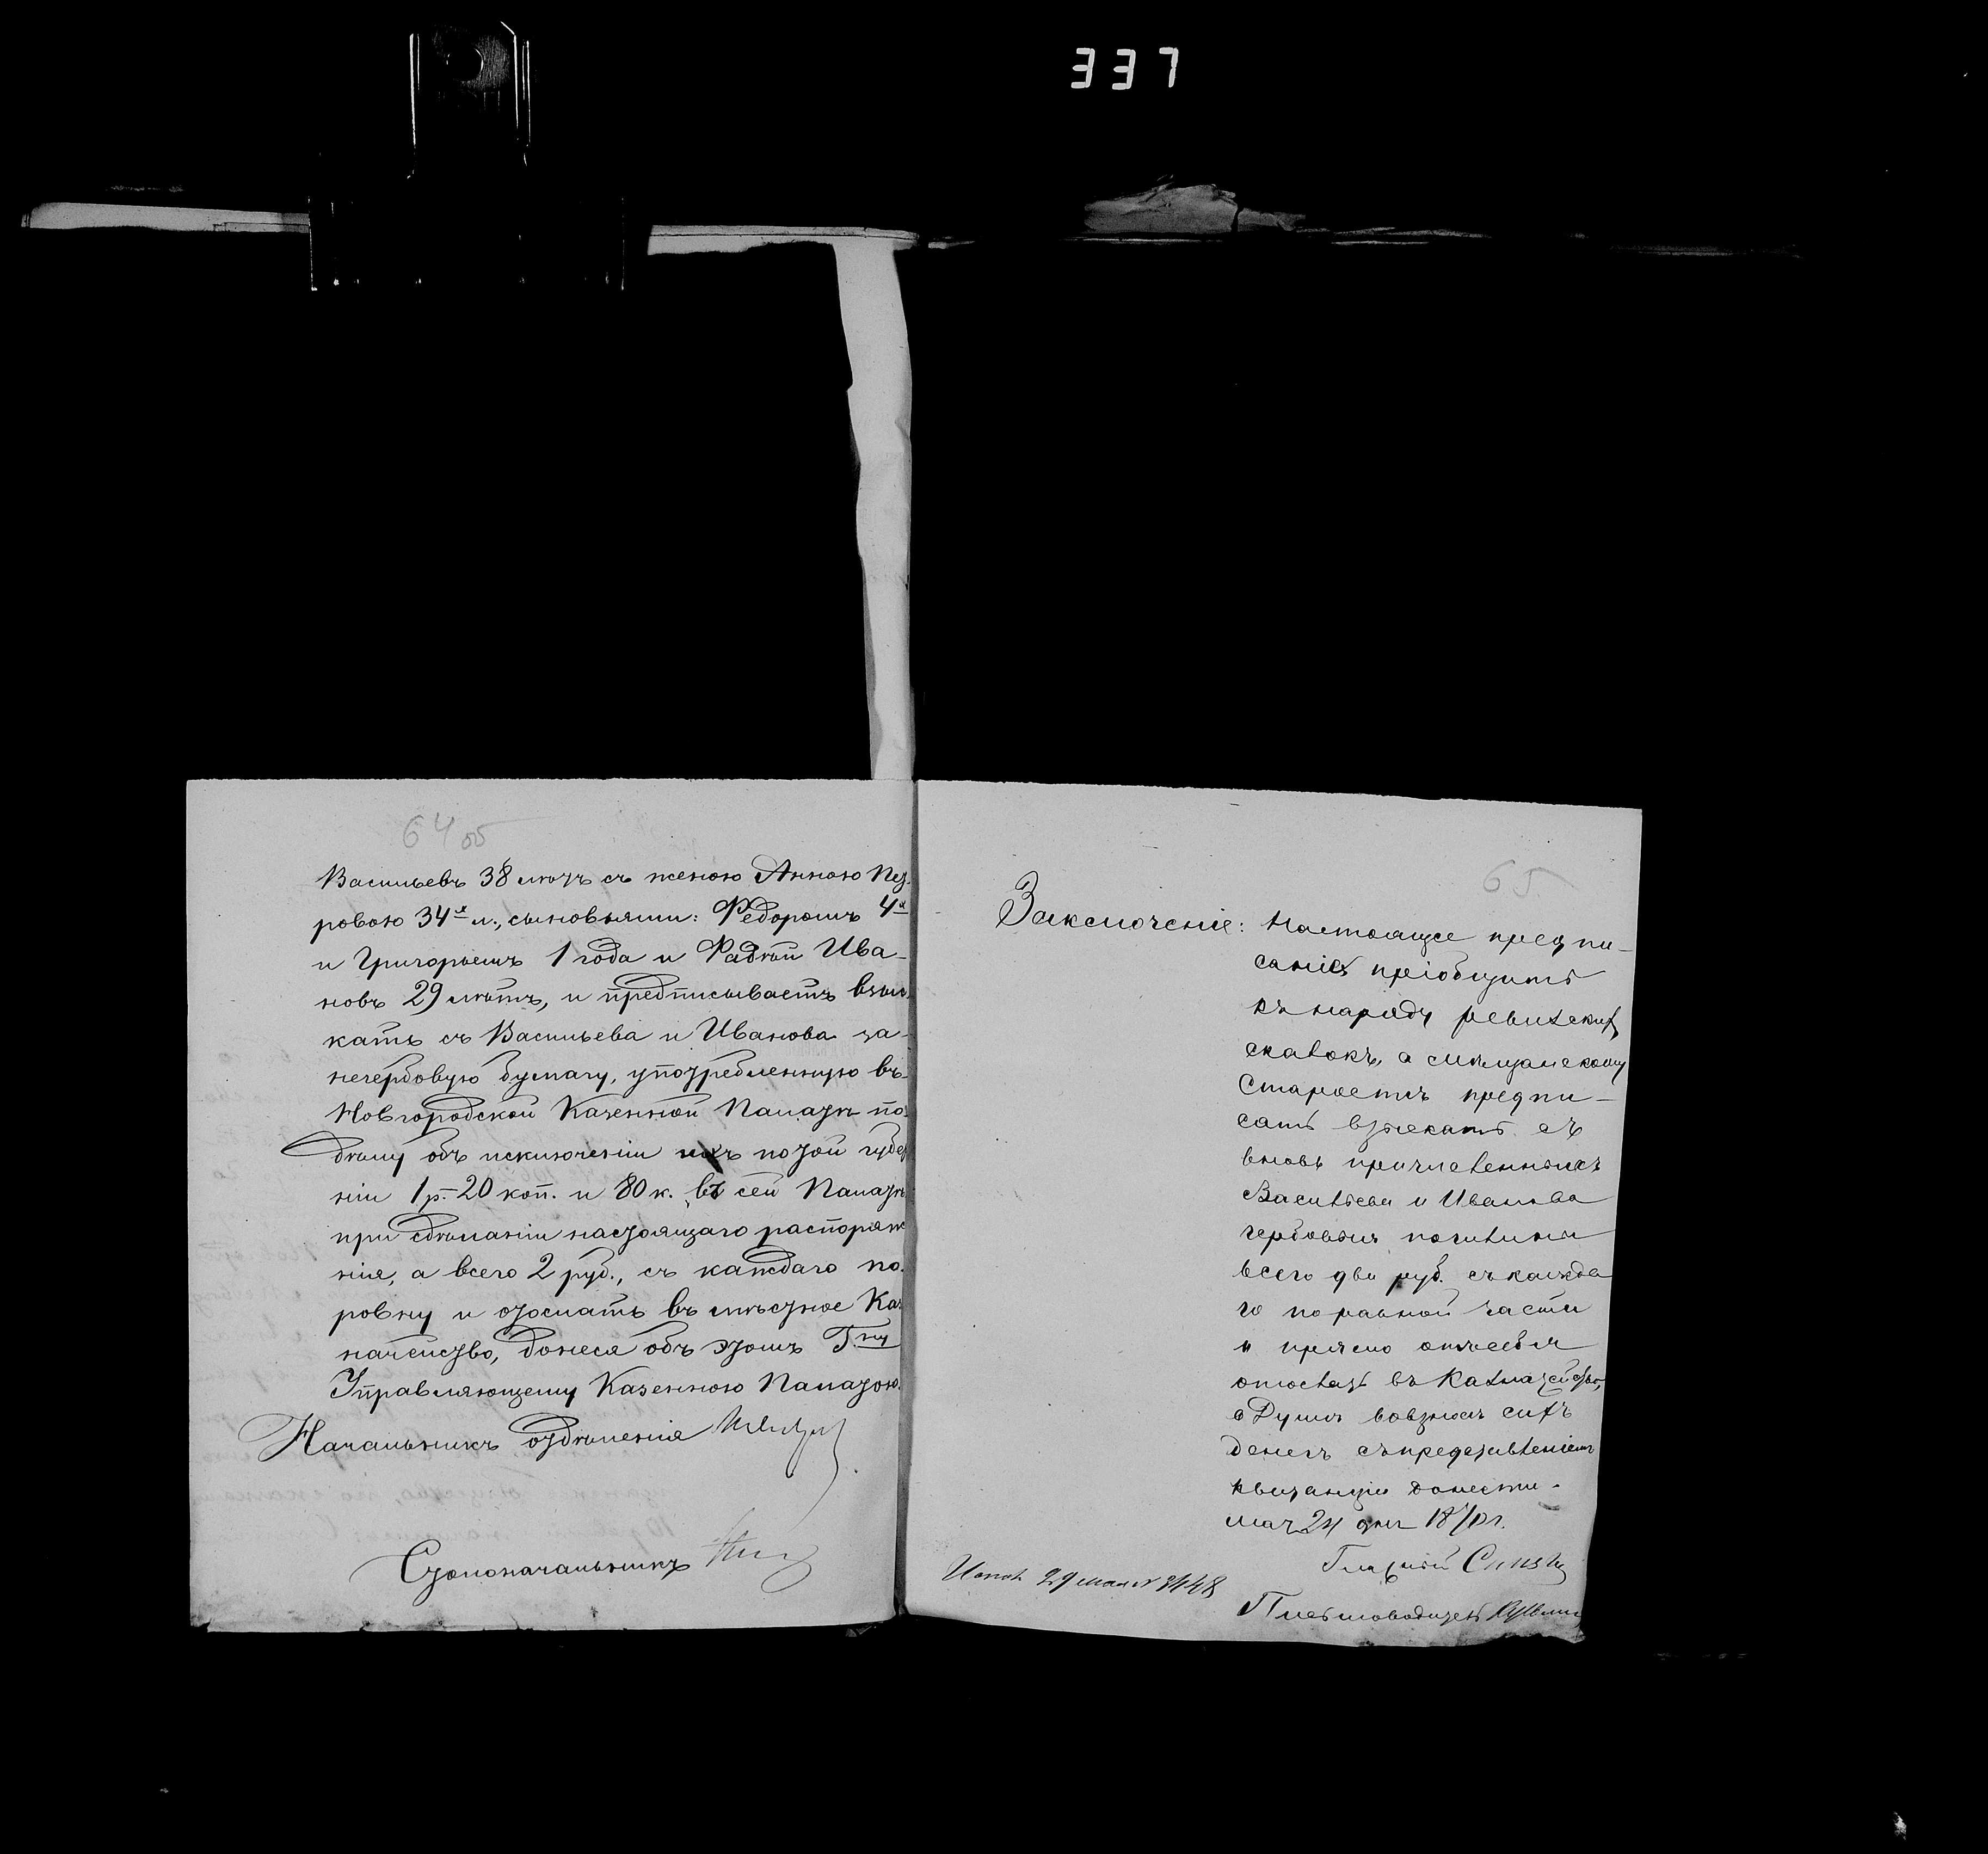 337
64 об
Васильевъ 38 лѣтъ съ женою Анною Пет-
ровою 34х л., сыновьями: Федоромъ 4х
и Григорьемъ 1 года и Фадѣй Ива-
новъ 29 лѣтъ, и предписываетъ взыс-
кать съ Васильева и Иванова за-
негербовую бумагу, употребленную въ-
Новгородской Казенной Палатѣ по-
дѣлу объ исключеніи ихъ по той губер
ніи 1 р. 20 коп. и 80 к. въ сей Палатѣ
при сдѣланіи настоящаго распоряж
нія, а всего 2 руб., съ каждаго по-
ровну и отослать въ мѣстное Каз
начейство, донеся объ этомъ Г.ну
Управляющему Казенною Палатою.
Начальникъ отдѣленія
Столоначальникъ
65
Заключеніе: Настоящее предпи-
саніе пріобщить
къ наряду ревизскихъ
сказокъ, а мѣщанскому
Старостѣ предпи-
сать взыскать съ
вновь причисленныхъ
Васильева и Иванова
гербовыя пошлины
всего два руб. съ каждa
го по равной части
и прямо отъ себя
отослать въ Казначейство,
а Думѣ о взносѣ сихъ
денегъ съ представленіемъ
квитанціи донести.
Мая 24 дня 1871 г.
Гласный
Письмоводитель
Испол. 29 мая № 448